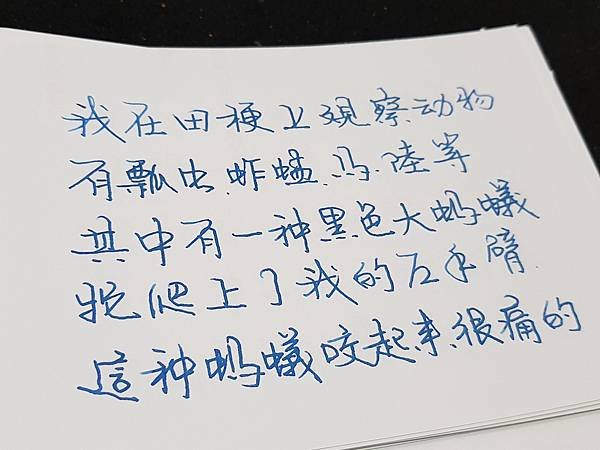 我在田梗上观察动物
有瓢虫.蚱蜢.马.陸等
其中有一种黑色大蚂蟻
牠爬上了我的左手臂.
這种蚂蟻咬起来很痛的